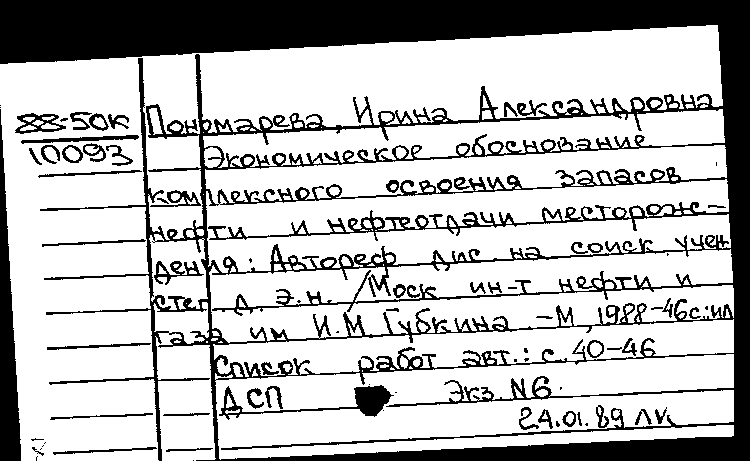 88-50К
10093
Пономарева, Ирина Александровна
Экономическое обоснование
комплексного освоения запасов
нефти и нефтеотдачи месторож-
дения: Автореф дис на соиск учен
степ д. э.н. / Моск ин-т нефти и
газа им И.М. Губкина -М, 1988-46с.:ил
Список работ авт.: с. 40-46
ДСП Экз. N6.
24.01.89 ЛК